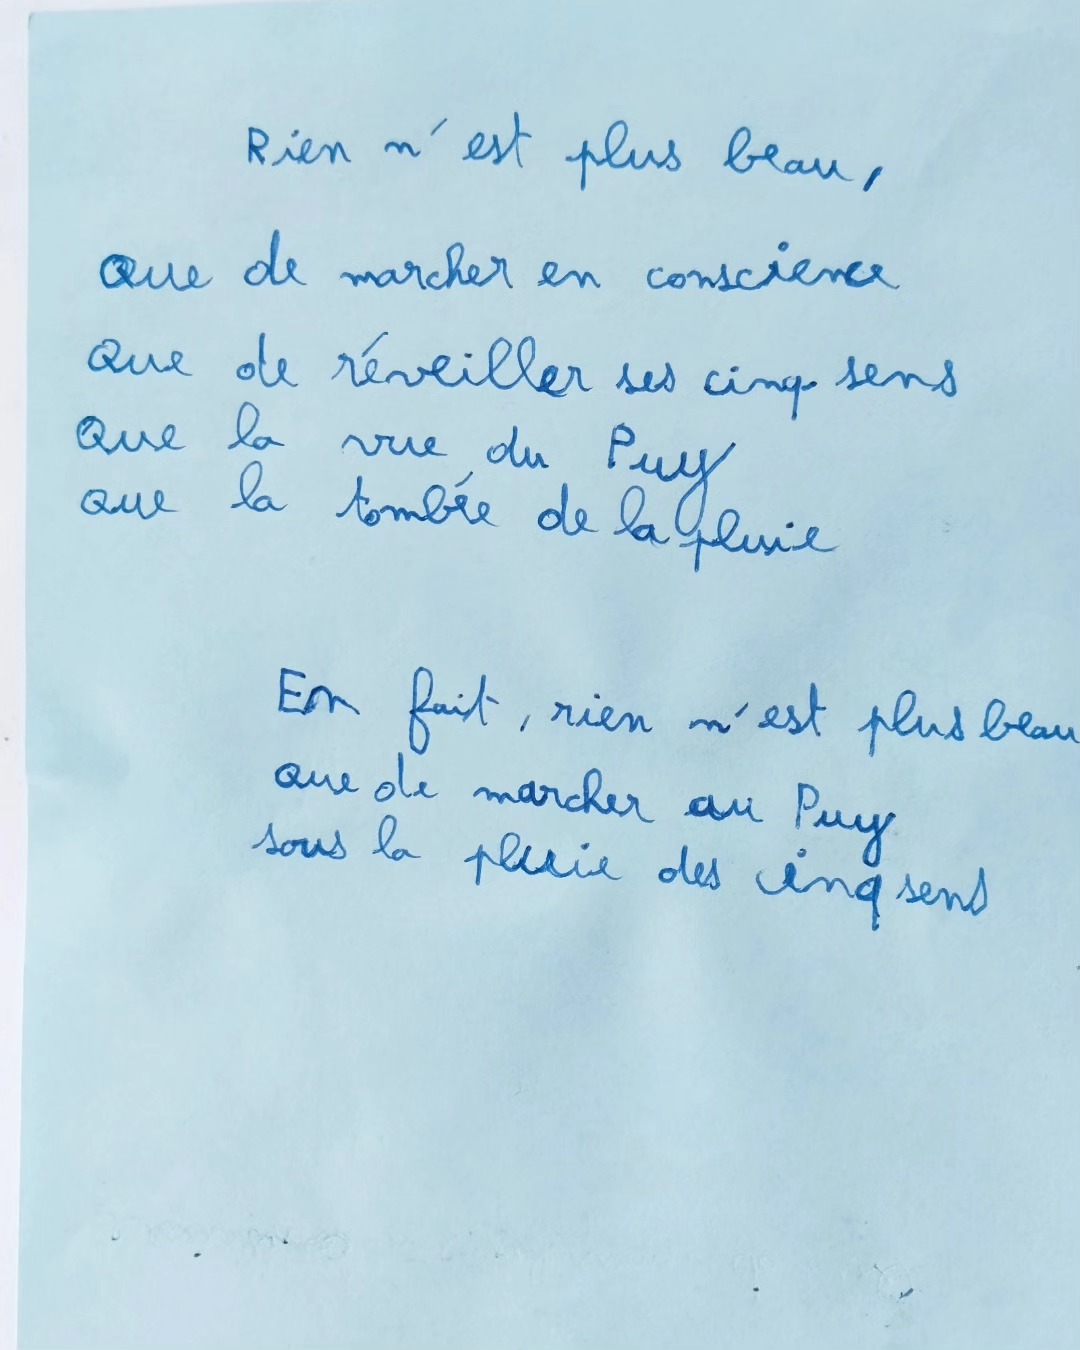 Rien n'est plus beau,
Que de marcher en conscience
Que de réveiller ses cinq sens
Que la vue du Puy
Que la tombée de la pluie
En fait, rien n'est plus beau
Que de marcher au Puy
sous la pluie des cinq sens